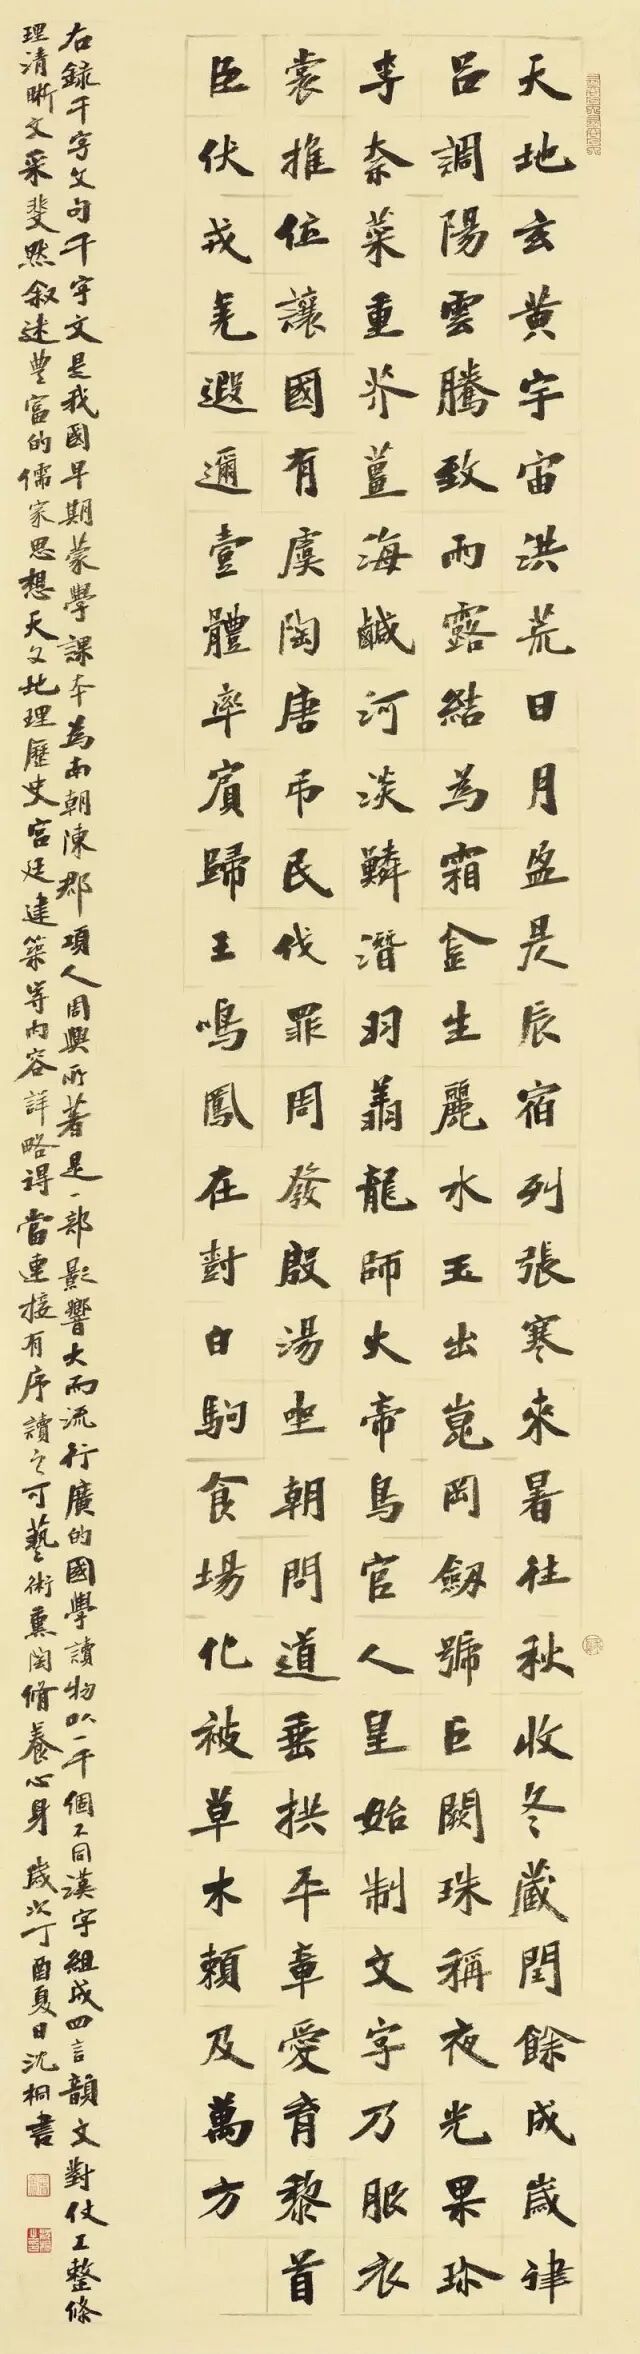 天地玄黃宇宙洪荒日月盈昃辰宿列張寒來暑往秋收冬藏閏餘成歲律
呂調陽雲騰致雨露結為霜金生麗水玉出崑岡劒號巨闕珠稱夜光果珍
李奈菜重芥薑海鹹河淡鱗潛羽翔龍師火帝鳥官人皇始制文字乃服衣
裳推位讓國有虞陶唐吊民伐罪周發殷湯坐朝問道垂拱平章愛育黎首
臣伏戎羌遐邇壹體率賓歸王鳴鳳在對白駒食場化被草木賴及萬方
右録千字文句千字文是我國早期蒙學課本為南朝陳郡項人周興所著是一部影響大而流行廣的國學讀物以一千個不同漢字組成四言韻文對仗工整條
理清晰文采斐然叙述豐富的儒家思想天文地理歷史宮廷建築等內容詳略得當連接有序讀之可藝術熏陶脩養心身歲次丁酉夏日沈桐書